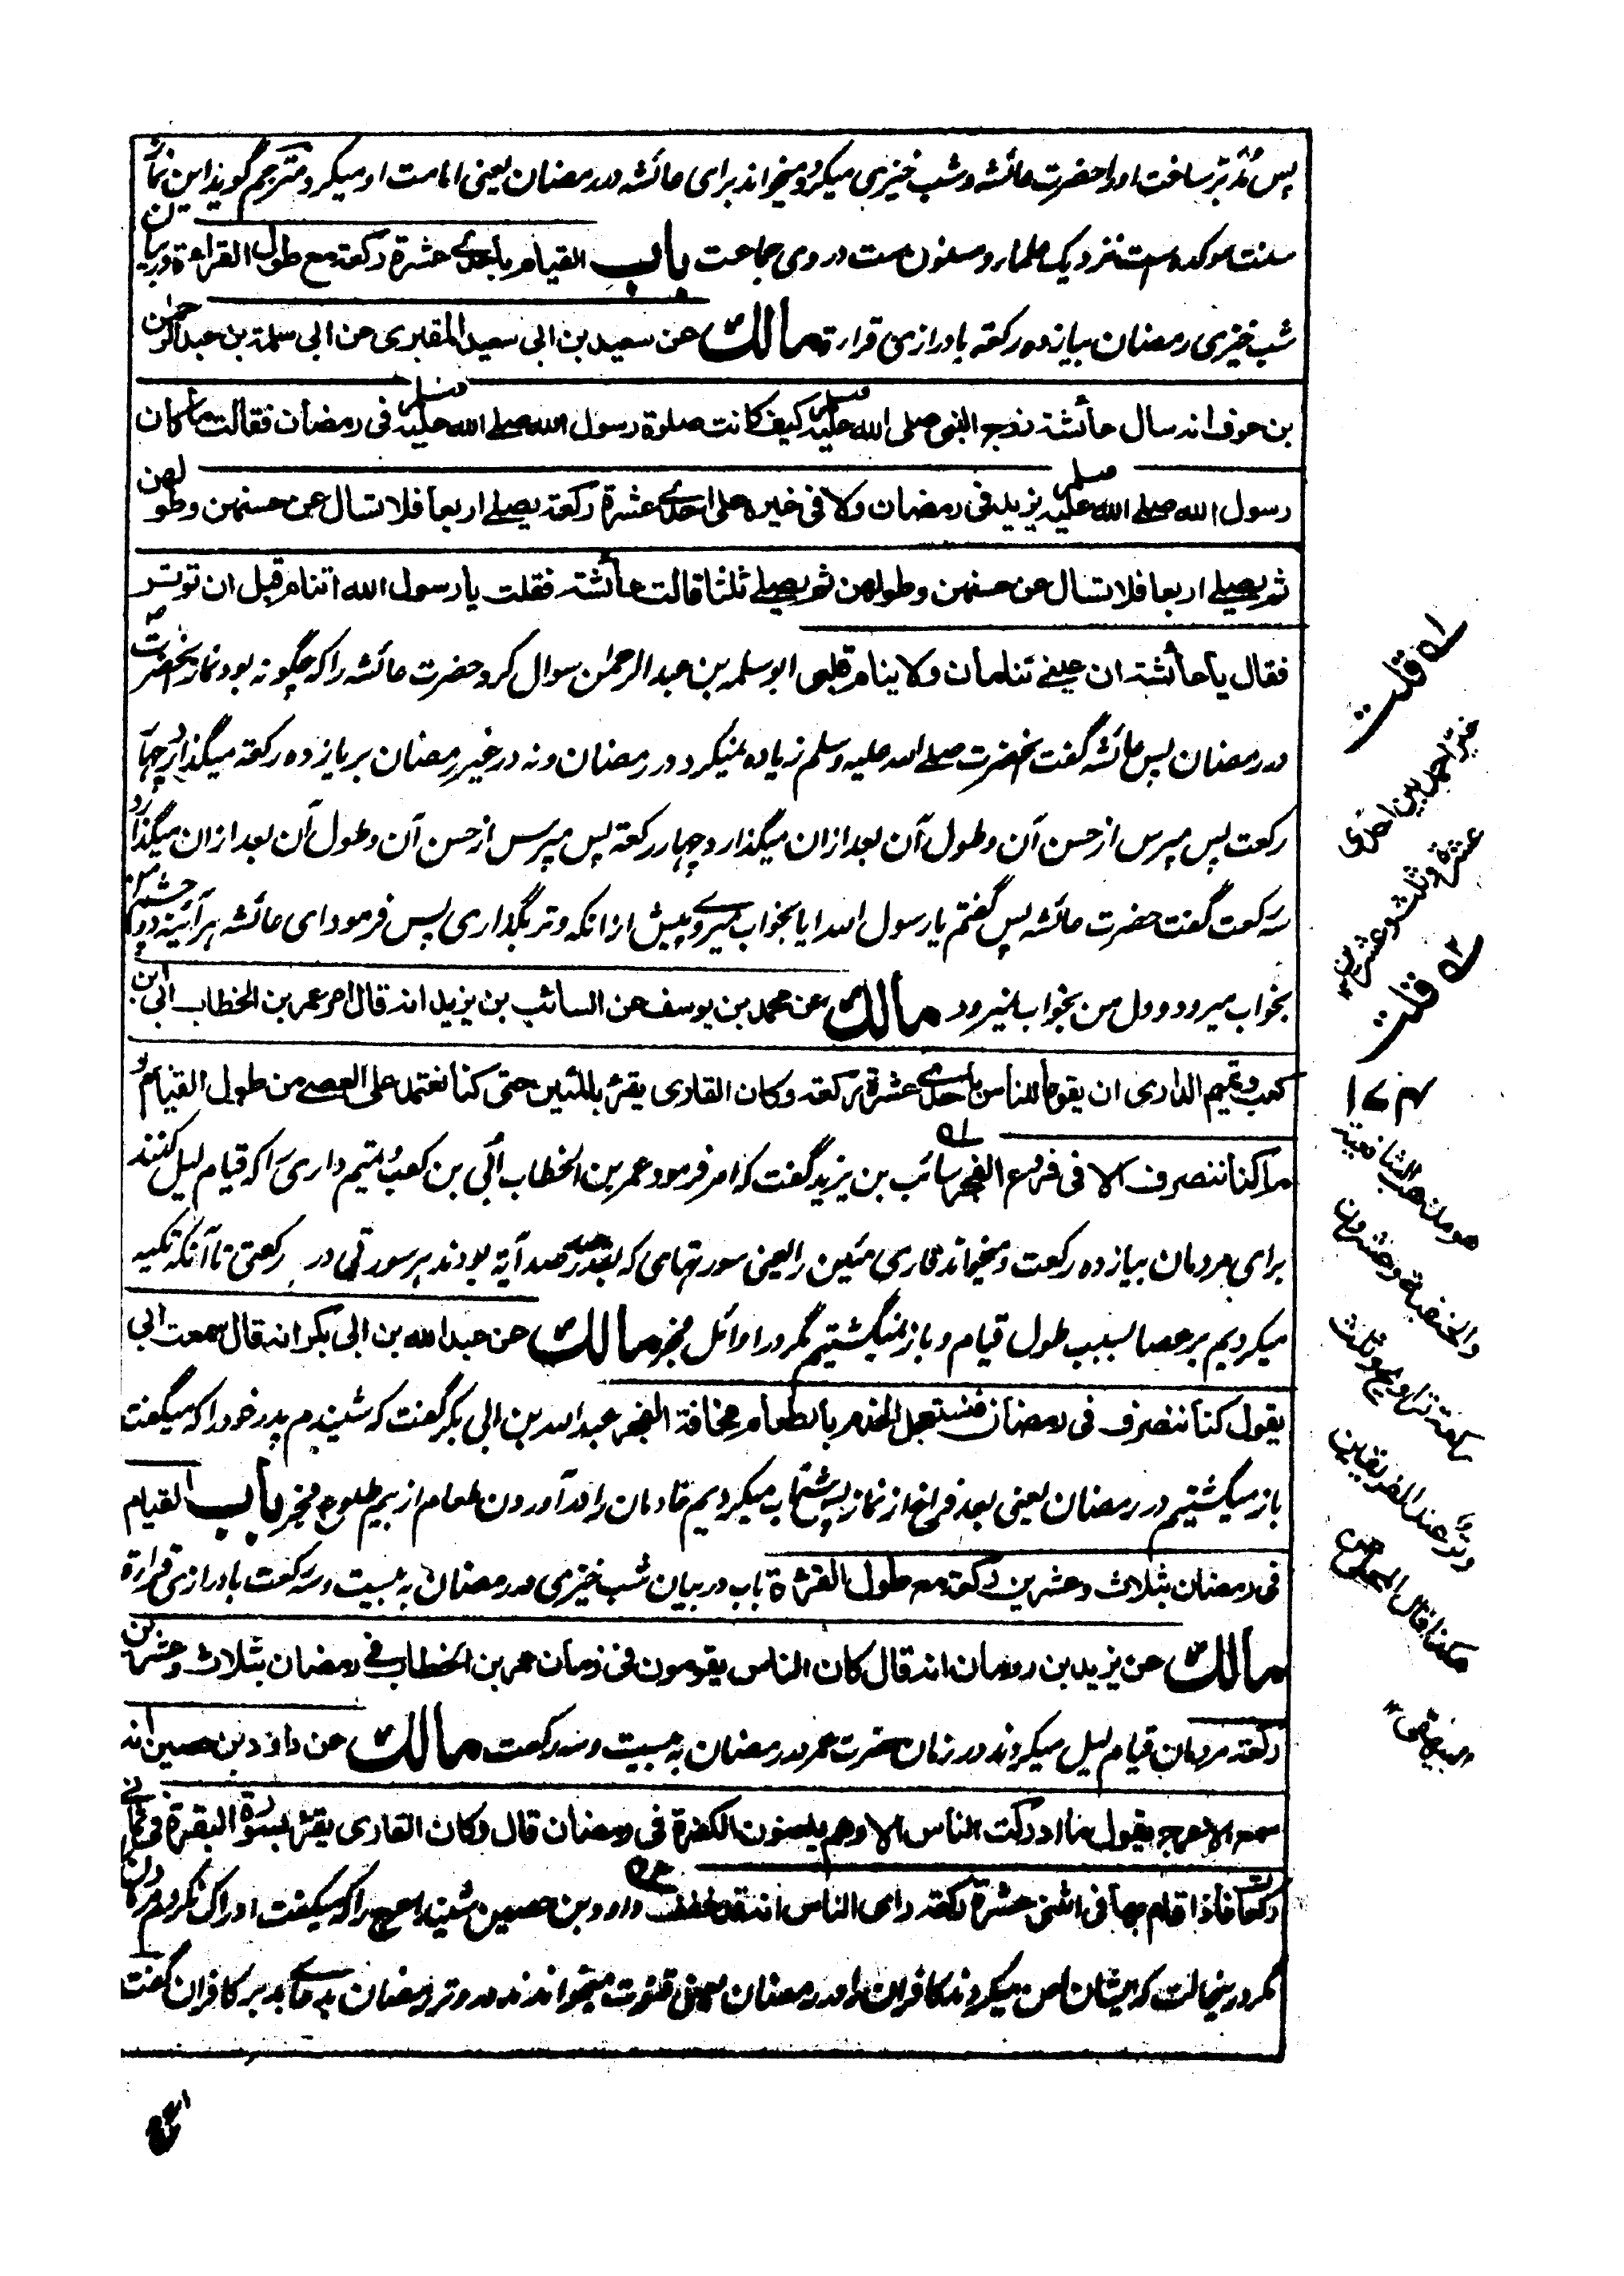 پس مدبر ساخت او را حضرت عائشه و شب خیزی میکرد و میخواند برای عائشه در رمضان یعنی امامت او میکرد مترجم گوید این نماز
سنت موکده است نزدیک علماء و مسنون ست در وی جماعت باب القیام باحدی عشرة رکعة مع طول القراءة در بیان
شب خیزی رمضان بیازده رکعة با درازی قراءة مالك عن سعید بن ابی سعید المقبری عن ابی سلمة بن عبد الرحمن
بن عوف انه سال عائشة زوج النبی صلی الله علیه وسلم کیف کانت صلوة رسول الله صلے الله علیه وسلم فی رمضان فقالت ما کان
رسول الله صلے الله علیه وسلم یزید فی رمضان ولا فی غیره علی احدے عشرة رکعة یصلے اربعا فلا تسال عن حسنهن وطولهن
ثم یصلے اربعا فلا تسال عن حسنهن وطولهن ثم یصلے ثلثا قالت عائشة فقلت یا رسول الله اتنام قبل ان توتر
فقال یا عائشة ان عینے تنامان ولا ینام قلبی ابو سلمه بن عبد الرحمن سوال کرد حضرت عائشه را که چگونه بود نماز آنحضرت
در رمضان پس عائشه گفت آنحضرت صلے الله علیه وسلم زیاده نمیکرد در رمضان و نه در غیر رمضان بر یازده رکعة میگذارد چهار
رکعت پس مپرس از حسن آن و طول آن بعد ازان میگذارد چهار رکعة پس مپرس از حسن آن و طول آن بعد ازان میگذارد
سه رکعت گفت حضرت عائشه پس گفتم یا رسول الله ایا بخواب میروے پیش ازانکه وتر بگذاری پس فرمود ای عائشه هر آئینه دو چشم من
بخواب میرود و دل من بخواب نمیرود مالك عن محمد بن یوسف عن السائب بن یزید انه قال امر عمر بن الخطاب ابی بن
کعب وتمیم الداری ان یقوما للناس باحدے عشرة رکعة وکان القاری یقرأ بالمئین حتی کنا نعتمد علی العصے من طول القیام و
ما کنا ننصرف الا فی فروع الفجر سائب بن یزید گفت که امر فرمود عمر بن الخطاب اُبی بن کعب و تمیم داری را که قیام لیل کنند
برای مردمان بیازده رکعت و میخواند قاری مئین را یعنی سورتهای که بقدر صد آیه بودند هر سورتی در رکعتی تا آنکه تکیه
میکردیم بر عصا بسبب طول قیام و باز نمیگشتیم مگر در اوائل فجر مالك عن عبد الله بن ابی بکر انه قال سمعت ابی
یقول کنا ننصرف فی رمضان فنستعجل الخدم بالطعام مخافة الفجر عبد الله بن ابی بکر گفت که شنیدم پدر خود را که میگفت
باز میگشتیم در رمضان یعنی بعد فراغ از نماز پس شتاب میکردیم خادمان را در آوردن طعام از بیم طلوع فجر باب القیام
فی رمضان بثلاث وعشرین رکعة مع طول القراءة باب در بیان شب خیزی در رمضان به بیست و سه رکعت با درازی قراءة
مالك عن یزید بن رومان انه قال کان الناس یقومون فی زمان عمر بن الخطاب فے رمضان بثلاث وعشرین
رکعة مردمان قیام لیل میکردند در زمان حضرت عمر در رمضان به بیست و سه رکعت مالك عن داؤد بن حصین انه
سمع الاعرج یقول ما ادرکت الناس الا وهم یلعنون الکفرة فی رمضان قال وکان القاری یقرأ بسورة البقرة فی ثمانے
رکعات فاذا قام بها فی اثنی عشرة رکعة رای الناس انه قد خفف داود بن حصین شنید اعرج را که میگفت ادراک نکردم مردمان
مگر در ینحالت که ایشان لعن میکردند کافران را در رمضان یعنی قنوت میخواندند در وتر رمضان بدعاے بد بر کافران گفت
له قلت
خیر احمد بین احدی
عشرة وثلث وعشرین ۱۲
٢ه قلت
هو مذهب الشافعیة
والحنفیة وعشرون
رکعة تراویح وثلث
وتر عند الفریقین
هکذا قال المحلی عن
البیهقی ۱۲